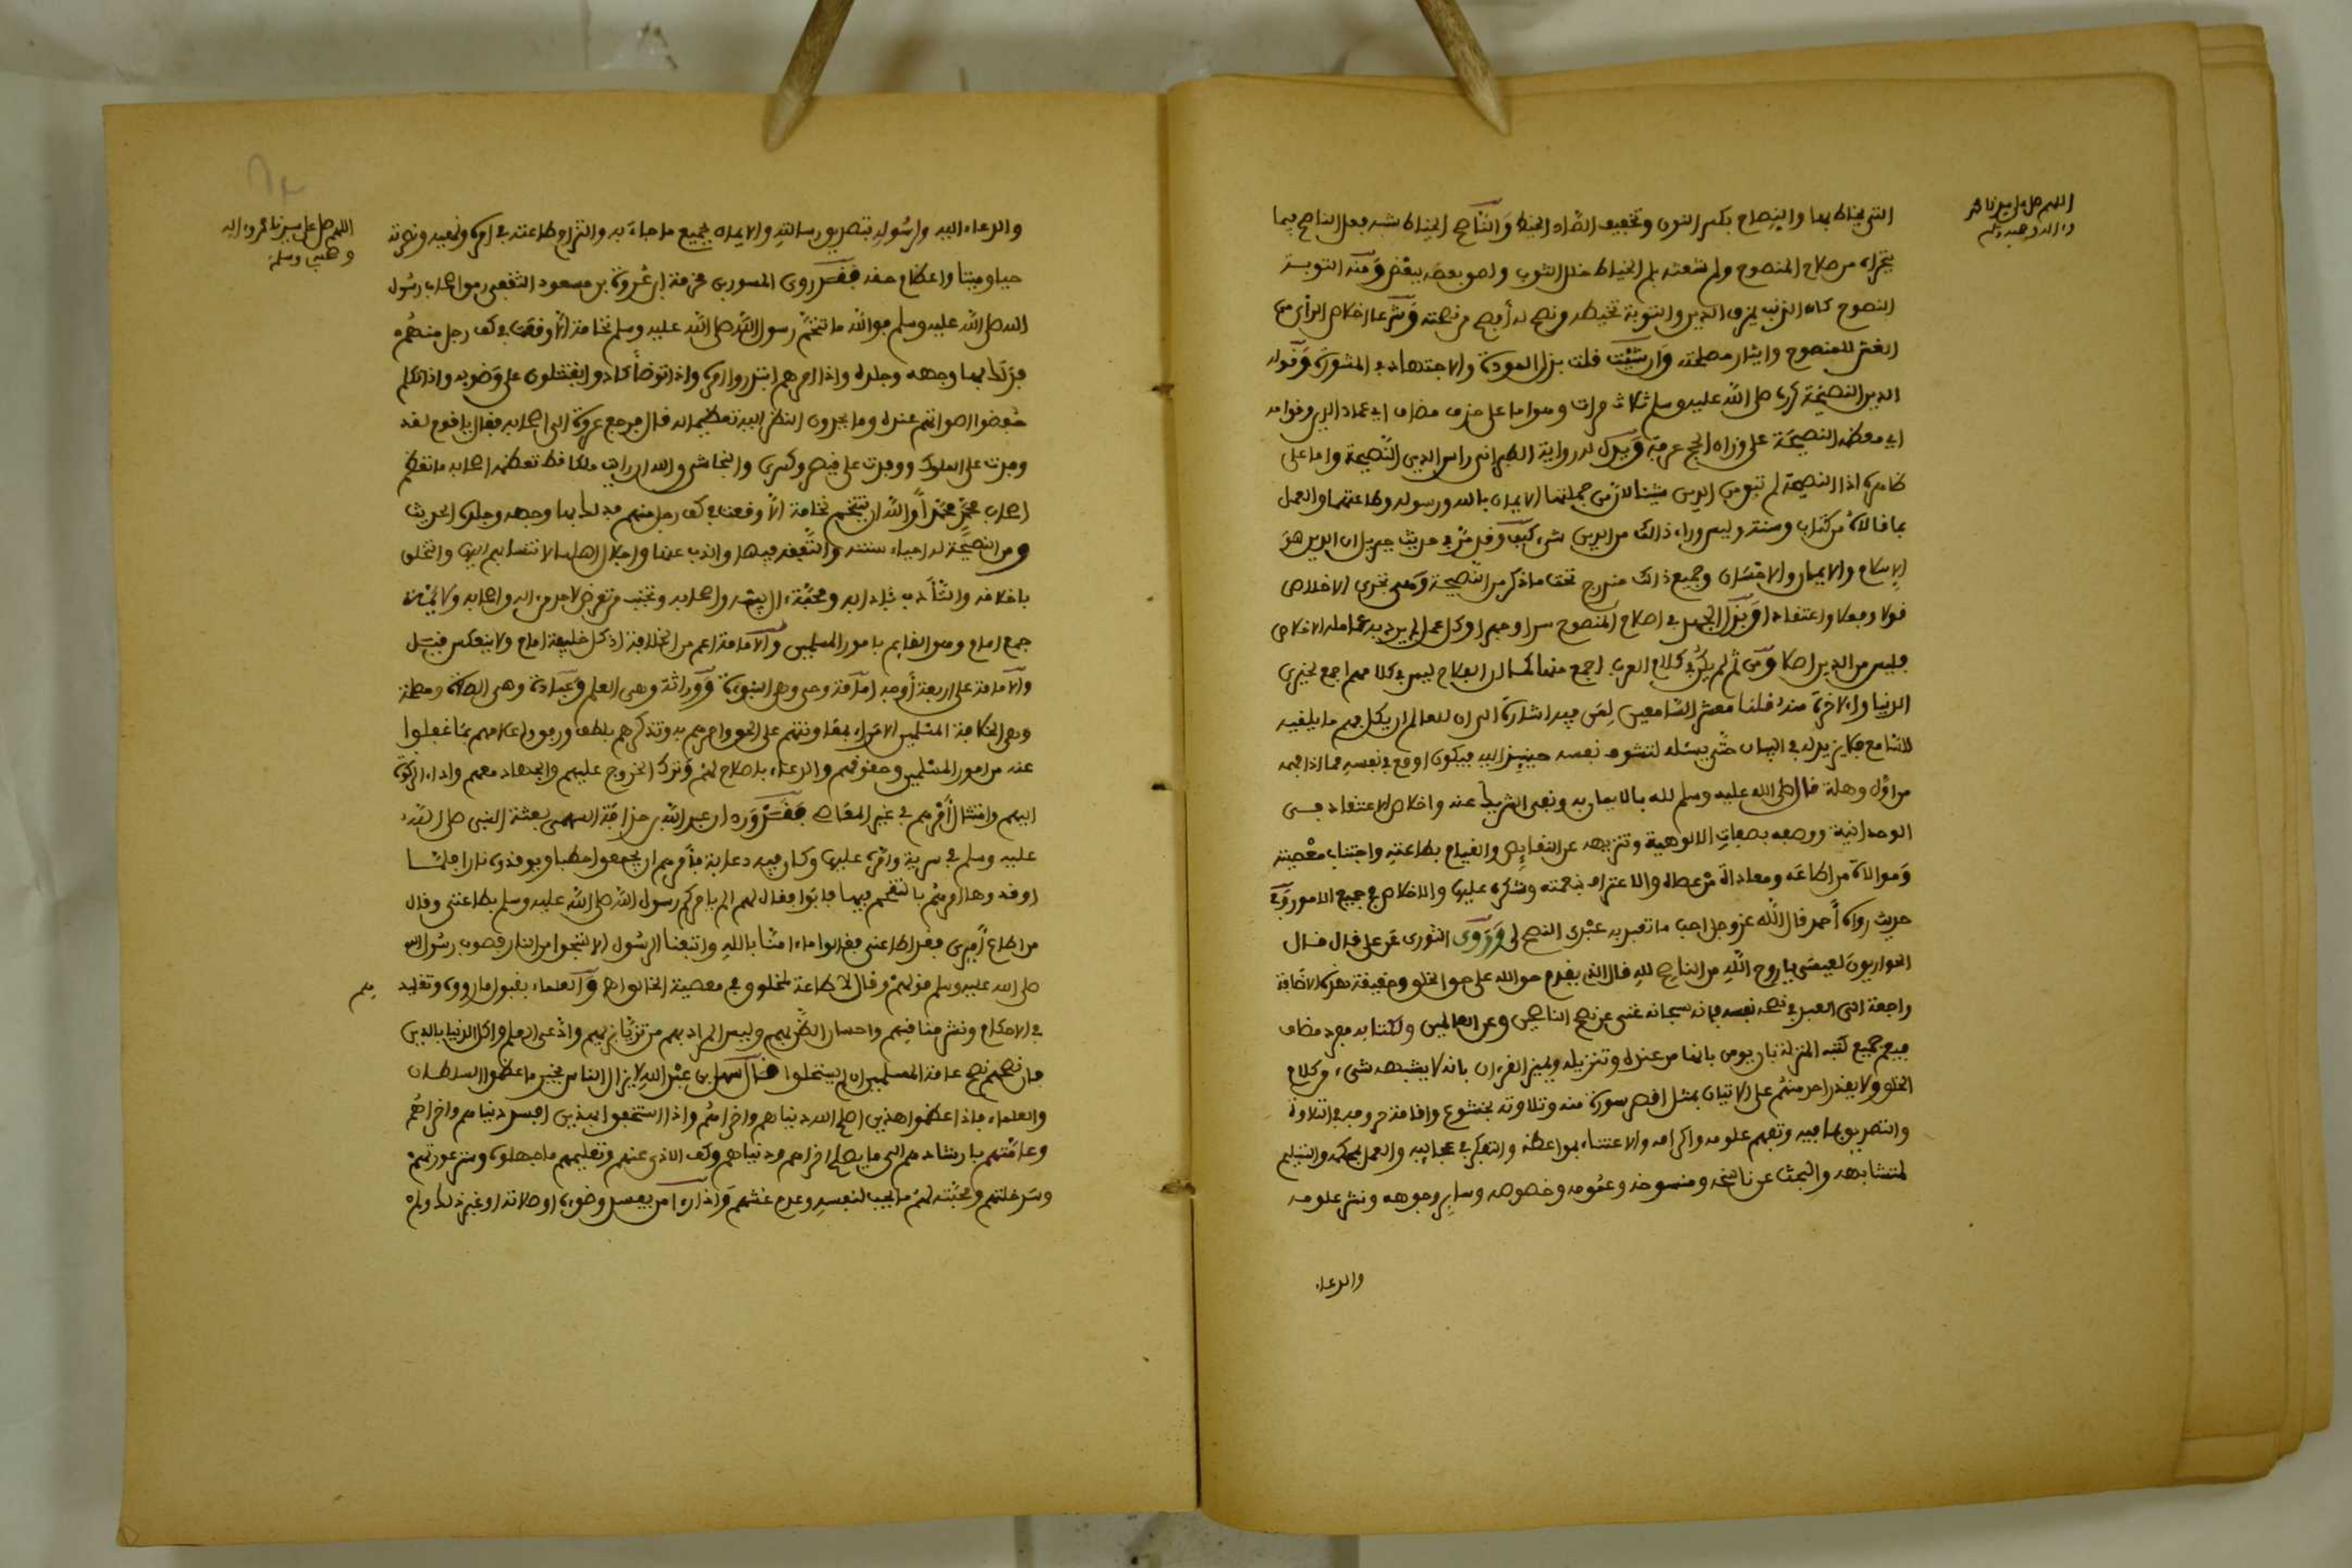 اللهم صل على سيدنا محمد
وءاله وصحبه وسلم
التي يخاط بها والنصاح بكسر النون وتخفيف الصاد الخيط والناصح الخياط شبه فعل الناصح فيما
يتحراه من صلاح المنصوح ولم شعثه بلم الخياط خلل الثوب ولصو بعضه ببعض ومنه التوبة
النصوح كان الذنب يمزق الدين والتوبة تخيطه ونصح له أفصح من نصحته وشرعا اخلاص الرأي من
الغش للمنصوح وايثار مصلحته وان شئت قلت بذل المودة والاجتهاد في المشورة وقوله
الدين النصيحة كررها صلى الله عليه وسلم ثلاث مرات وهو اما على حذف مضاف اي عماد الدين وقوامه
اي معظمه النصيحة على وزان الحج عرفة ويدل له رواية الطبراني راس الدين النصيحة واما على
ظاهره اذ النصيحة لم تبق من الدين شيئا لان من جملتها الايمان بالله ورسوله وطاعتهما والعمل
بما قالاه من كتاب وسنة وليس وراء ذلك من الدين شيء كيف وقد مر في حديث جبريل ان الدين هو
الاسلام والايمان والاحسان وجميع ذلك مندرج تحت ما ذكر من النصيحة وهي تحري الاخلاص
قولا وفعلا واعتقادا وبذل الجهد في اصلاح المنصوح سرا وجهرا وكل عمل لم يرد به عامله الاخلاص
فليس من الدين اصلا ومن ثم لم يكن في كلام العرب اجمع منها كما ان الفلاح ليس في كلامهم اجمع لخيري
الدنيا والاخرة منه قلنا معشر السامعين لمن فيه اشارة الى ان للعالم ان يكل فهم ما يلقيه
للسامع فلا يزيد له في البيان حتى يسئله لتتشوف نفسه حينئذ اليه فيكون اوقع في نفسه مما اذا فهمه
من اول وهلة قال صلى الله عليه وسلم لله بالايمان به ونفي الشريك عنه واخلاص الاعتقاد في
الوحدانية ووصفه بصفات الالوهية وتنزيهه عن النقايص والقيام بطاعته واجتناب معصيته
وموالاة من اطاعه ومعاداة من عصاه والاعتراف بنعمته وشكره عليها والاخلاص في جميع الامور وفي
حديث رواه أحمد قال الله عز وجل احب ما تعبد به عبدي النصح لي وروى الثوري عن علي قال قال
الحواريون لعيسى يا روح الله من الناصح لله قال الذي يقدم حق الله على حق الخلق وحقيقة هذه الاضافة
راجعة الى العبد في نصحه نفسه فانه سبحانه غني عن نصح الناصحين وعن العالمين ولكتابه مفرد مضاف
فيعم جميع كتبه المنزلة بان يومن بانها من عنده وتنزيله ويميز القرءان بانه لا يشبهه شيء من كلام
الخلق ولا يقدر احد منهم على الاتيان بمثل اقصر سورة منه وتلاوته بخشوع واقامة حروفه في التلاوة
والتصديق بما فيه وتفهم علومه واكرامه والاعتناء بمواعظه والتفكر في عجايبه والعمل بمحكمه والتسليم
لمتشابهه والبحث عن ناسخه ومنسوخه وعمومه وخصوصه وساير وجوهه ونشر علومه
والدعاء
اللهم صل على سيدنا محمد وءاله
وصحبه وسلم
والدعاء اليه ولرسوله بتصديق رسالته والايمان بجميع ما جاء به والتزام طاعته في امره ونهيه ونصرته
حيا وميتا واعظام حقه فقد روى المسور بن مخرمة ان عروة بن مسعود الثقفي رمق اصحاب رسول
الله صلى الله عليه وسلم فوالله ما تنخم رسول الله صلى الله عليه وسلم نخامة الا وقعت في كف رجل منهم
فدلك بها وجهه وجلده واذا امرهم ابتدروا امره واذا توضأ كادوا يقتتلون على وضوئه واذا تكلم
خفضوا اصواتهم عنده وما يحدون النظر اليه تعظيما له قال فرجع عروة الى اصحابه فقال يا قوم لقد
وفدت على الملوك ووفدت على قيصر وكسرى والنجاشي والله ان رايت ملكا قط تعظمه اصحابه ما تعظم
اصحاب محمد محمدا والله ان يتنخم نخامة الا وقعت في كف رجل منهم فدلك بها وجهه وجلده الحديث
ومن النصيحة له احياء سنته والتفقه فيها والذب عنها واجلال اهلها لانتسابهم اليها والتخلق
باخلاقه والتأدب بآدابه ومحبة ال بيته واصحابه وتجنب من تعرض لاحد من اله واصحابه ولايمة
جمع امام وهو القايم بامور المسلمين والامامة اعم من الخلافة اذ كل خليفة امام ولا ينعكس فيسل
والامامة على اربعة أوجه امامة وحي وهي النبوة ووراثة وهي العلم وعبادة وهي الصلاة ومصلحة
وهي الخلافة المسلمين الامراء بمعاونتهم على الحق وامرهم به وتذكرهم بلطف ورفق واعلامهم بما غفلوا
عنه من امور المسلمين وحقوقهم والدعاء بالصلاح لهم وترك الخروج عليهم والجهاد معهم واداء الزكوة
اليهم وامتثال أمرهم في غير المعاصي فقد ورد ان عبد الله بن حذافة السهمي بعثه النبي صلى الله
عليه وسلم في سرية وامره عليها وكان فيه دعابة فأمرهم ان يجمعوا حطبا ويوقدوه نارا فلما
اوقدوها امرهم بالتقحم فيها فابوا فقال لهم الم يامركم رسول الله صلى الله عليه وسلم بطاعتي وقال
من اطاع أميري فقد اطاعني فقالوا ما ءامنا بالله واتبعنا الرسول الا لننجوا من النار فصوب رسول الله
صلى الله عليه وسلم قولهم وقال لا طاعة لمخلوق في معصية الخالق اما والعلماء بقبول ما رووه وتقليدهم
في الاحكام ونشر مناقبهم واحسان الظن بهم وليس المراد بهم من تزيا بزيهم وادعى العلم واكل الدنيا بالدين
فان نصحهم نصح عامة المسلمين ان لم يستحلوا قال سهل بن عبد الله لا يزال الناس بخير ما عظموا السلطان
والعلماء فاذا عظموا هذين اصلح الله دنياهم واخراهم واذا استخفوا بهذين افسد دنياهم واخراهم
وعامتهم بارشادهم الى ما يصلح اخراهم ودنياهم وكف الاذى عنهم وتعليمهم ما جهلوه وستر عورتهم
وسد خلتهم ومحبته لهم ما يحب لنفسه وعدم غشهم واذا رءا من يفسد وضوءه او صلاته او غير ذلك ولم